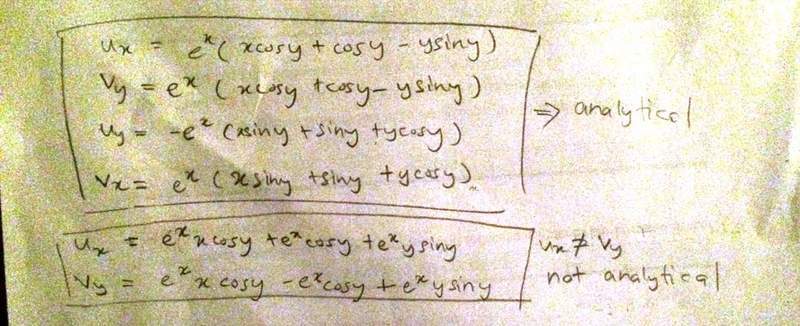 uₓ = eˣ( xcosy + cosy - ysiny)
Vy = eˣ ( xcosy +cosy - ysiny)
uy = -eˣ (xsiny + siny +ycosy)
Vₓ = eˣ ( xsiny +siny +ycosy)
⇒ analytical
uₓ = eˣxcosy +eˣcosy +eˣysiny
Vy = eˣxcosy -eˣcosy + eˣysiny
uₓ ≠ Vy
not analytical